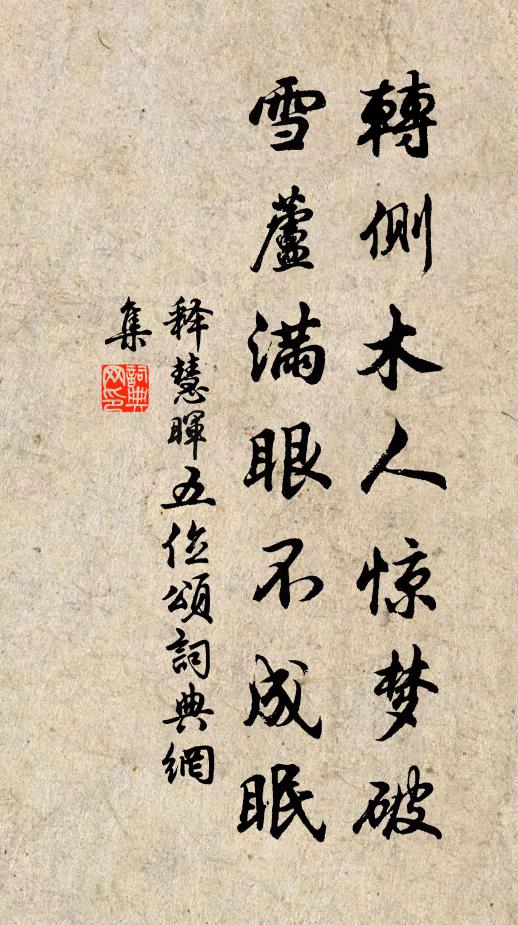 轉側木人惊梦破
雪蘆满眼不成眠
释慧暉五位頌詞典網
集
詞典
网印